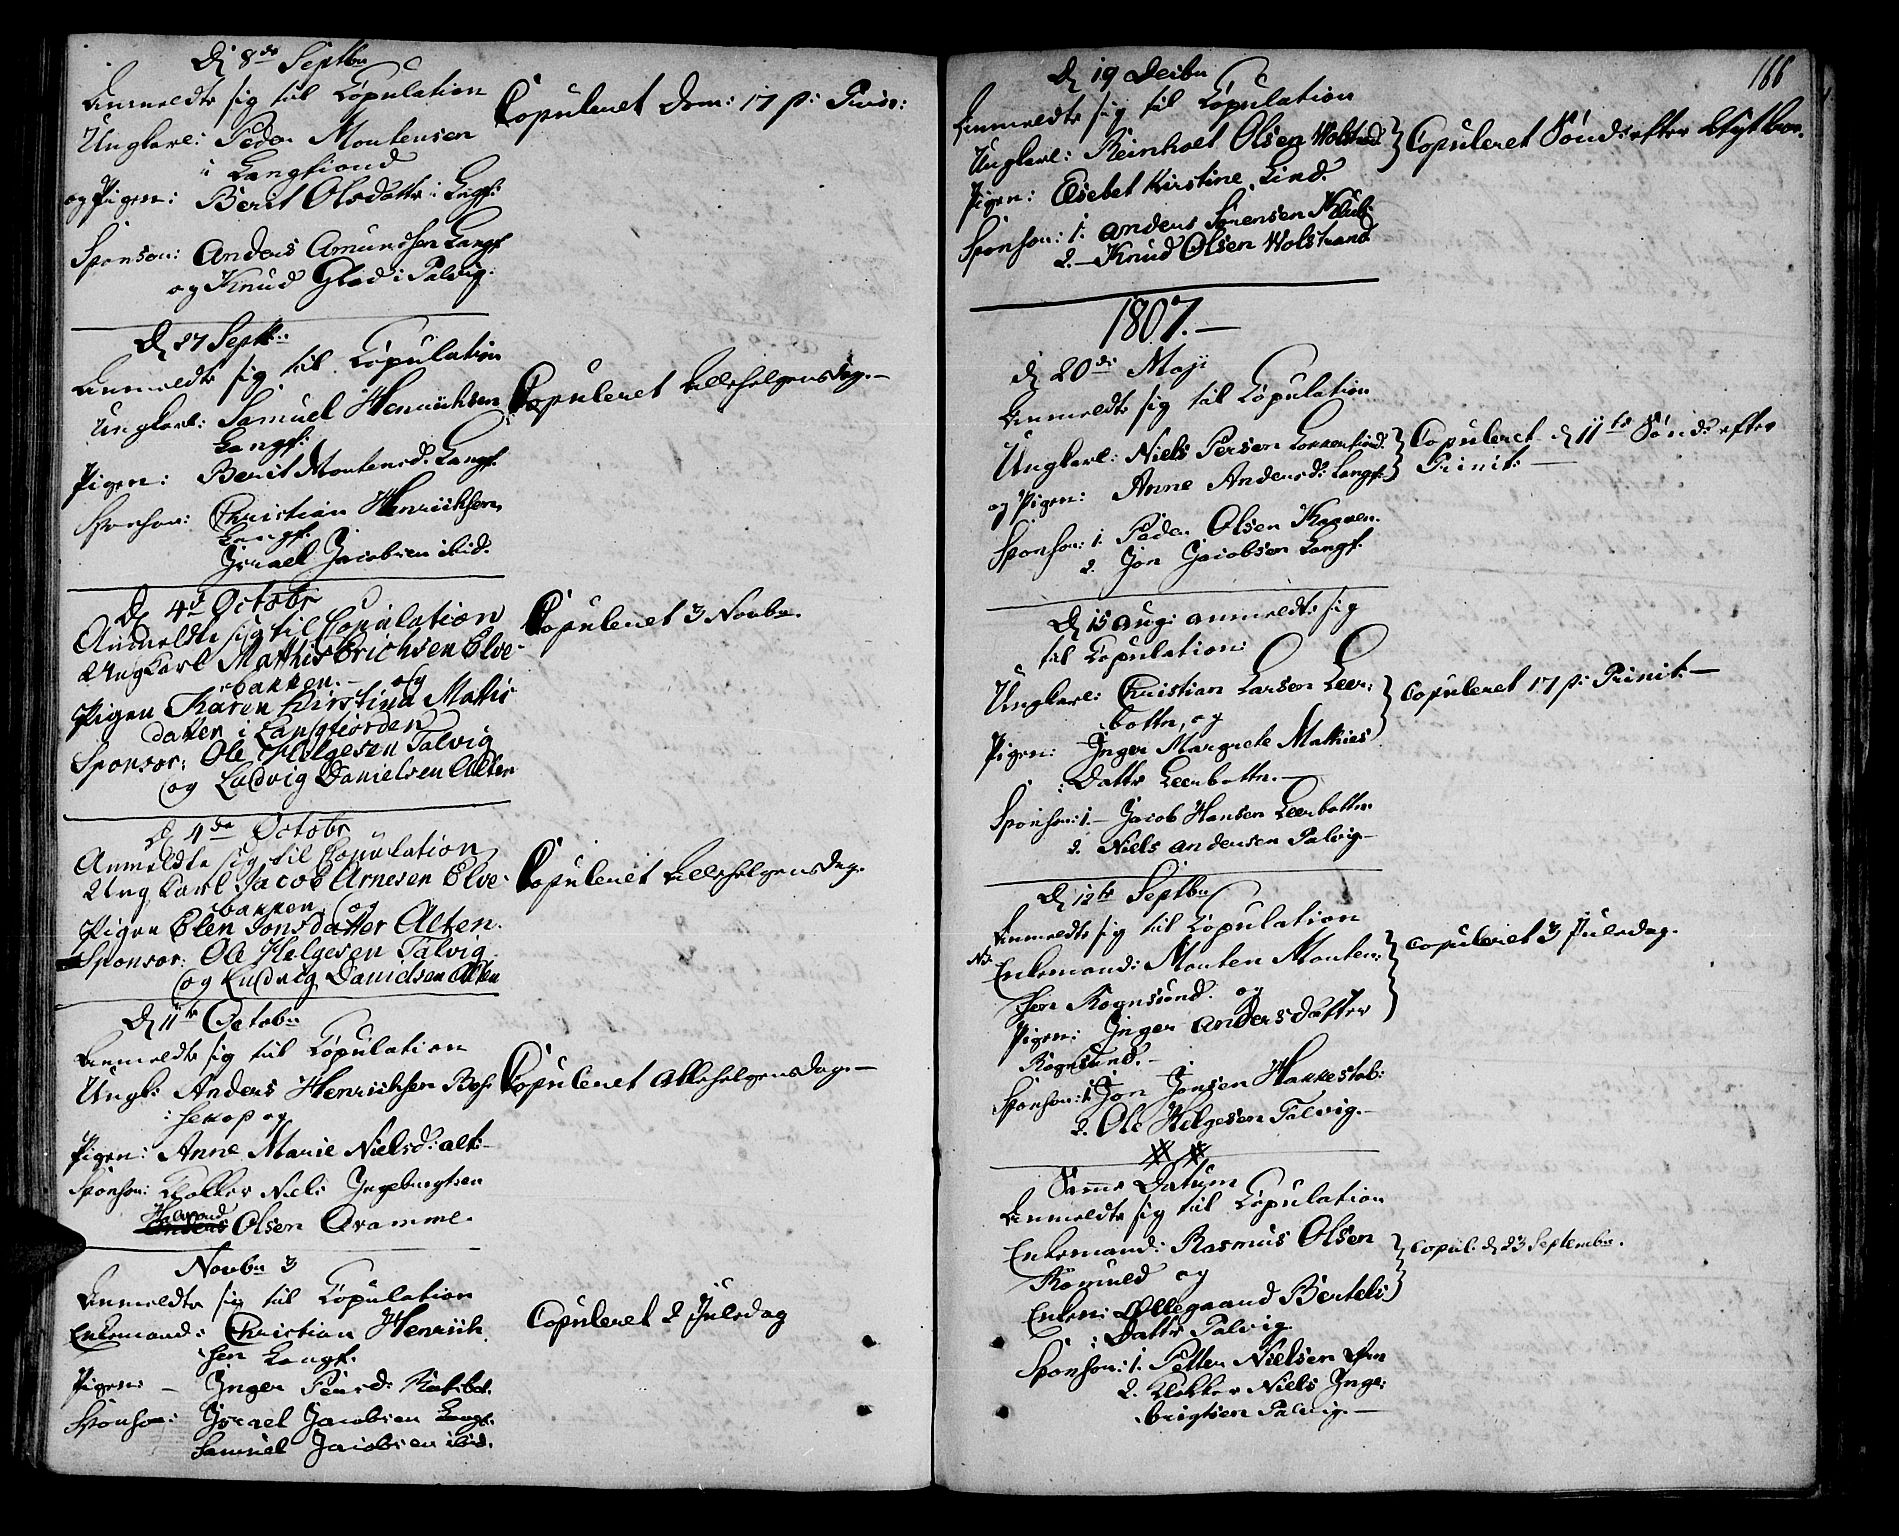 D 8de Septbr
Anmeldte sig til Copulation
Ungkarl: Peder Mortensen
i Langfiord
og Pigen: Berit Olsdatter i Langf:
Sponsor: Anders Amundsen Langf.
og Knud Glad i Talvig:
Copuleret Dom: 17 p: Trinit:
D 27 Septbr:
Anmeldte sig til Copulation
Ungkarl: Samuel Henrichsen
Langf:
Pigen: Berit Mortensd: Langf.
Sponsor: Christian Henrichsen
Langf.
Israel Jacobsen ibid.
Copuleret Allehelgensdag.—
D 4de Octobr
Anmeldte sig til Copulation
Ungkarl Mathis Erichsen Elve-
bakken.— og
Pigen Karen Kirstina Mathis
datter i Langfiorden
Sponsor: Ole Helgesen Talvig
og Ludvig Danielsen Alten
Copuleret 3 Novbr.
D 4de Octobr
Anmeldte sig til Copulation
Ung Karl Jacob Arnesen Elve-
bakken og
Pigen Elen Jonsdatter Alten.
Sponsor: Ole Helgesen Talvig
og Ludvig Danielsen Alten
Copuleret Allehelgensdag.
D 11te Octobr
Anmeldte sig til Copulation
Ungk: Anders Henrichsen Bos-
:sekop og
Pigen: Anne Marie Nielsd: Alt:
Sponsor: Klokker Niels Ingebrigtsen
Havard
Anders Olsen Aramme.
Copuleret Allehelgensdag.—
Novbr 3
Anmeldte sig til Copulation
Enkemand: Christian Henrich
sen Langf.
Pigen: — Inger Persd:
Sponsor: Israel Jacobsen Langf.
Samuel Jacobsen ibid.
Copuleret 2 Juledag
166
D 19 Decbr
Anmeldte sig til Copulation
Ungkarl: Reinholt Olsen Wolstrand
Pigen: Elsebet Kirstine Lind.
Sponsor: 1. Anders Sørensen
2.— Knud Olsen Wolstrand
Copuleret Sønd: efter Nytaar.
1807.—
D 20de Maji
Anmeldte sig til Copulation
Ungkarl: Niels Persen Korsfiord.
og Pigen: Anne Andersd: Langf:
Sponsor: 1. Peder Olsen
2. Jon Jacobsen Langf.
Copuleret D 11te Sønd: efter
Trinit: —
D 15 Aug: anmeldte sig
til Copulation:
Ungkarl: Christian Larsen Leer:
botten, og
Pigen: Inger Margrete Mathies
:Datter Leerbotten.—
Sponsor: 1.— Jacob Hansen Leerbotten
2. Niels Andersen Talvig.—
Copuleret 17 p: Trinit.—
D 12te Septbr
Anmeldte sig til Copulation
N3. Enkemand: Morten Morten:
sen Rognsund. og
Pigen: Inger Andersdatter
Rognsund.—
Sponsor: 1. Jon Jonsen Hakkestab:
2. Ole Helgesen Talvig.—
Copuleret 3 Juledag.
Samme Datum
Anmeldte sig til Copulation
Enkemand: Rasmus Olsen
Komuld og
Enken: Ollegaard Bertels
:Datter Talvig
Sponsor: 1. Petter Nielsen
2. Klokker Niels Inge:
brigtsen Talvig.—
Copul. D 23 Septembr.